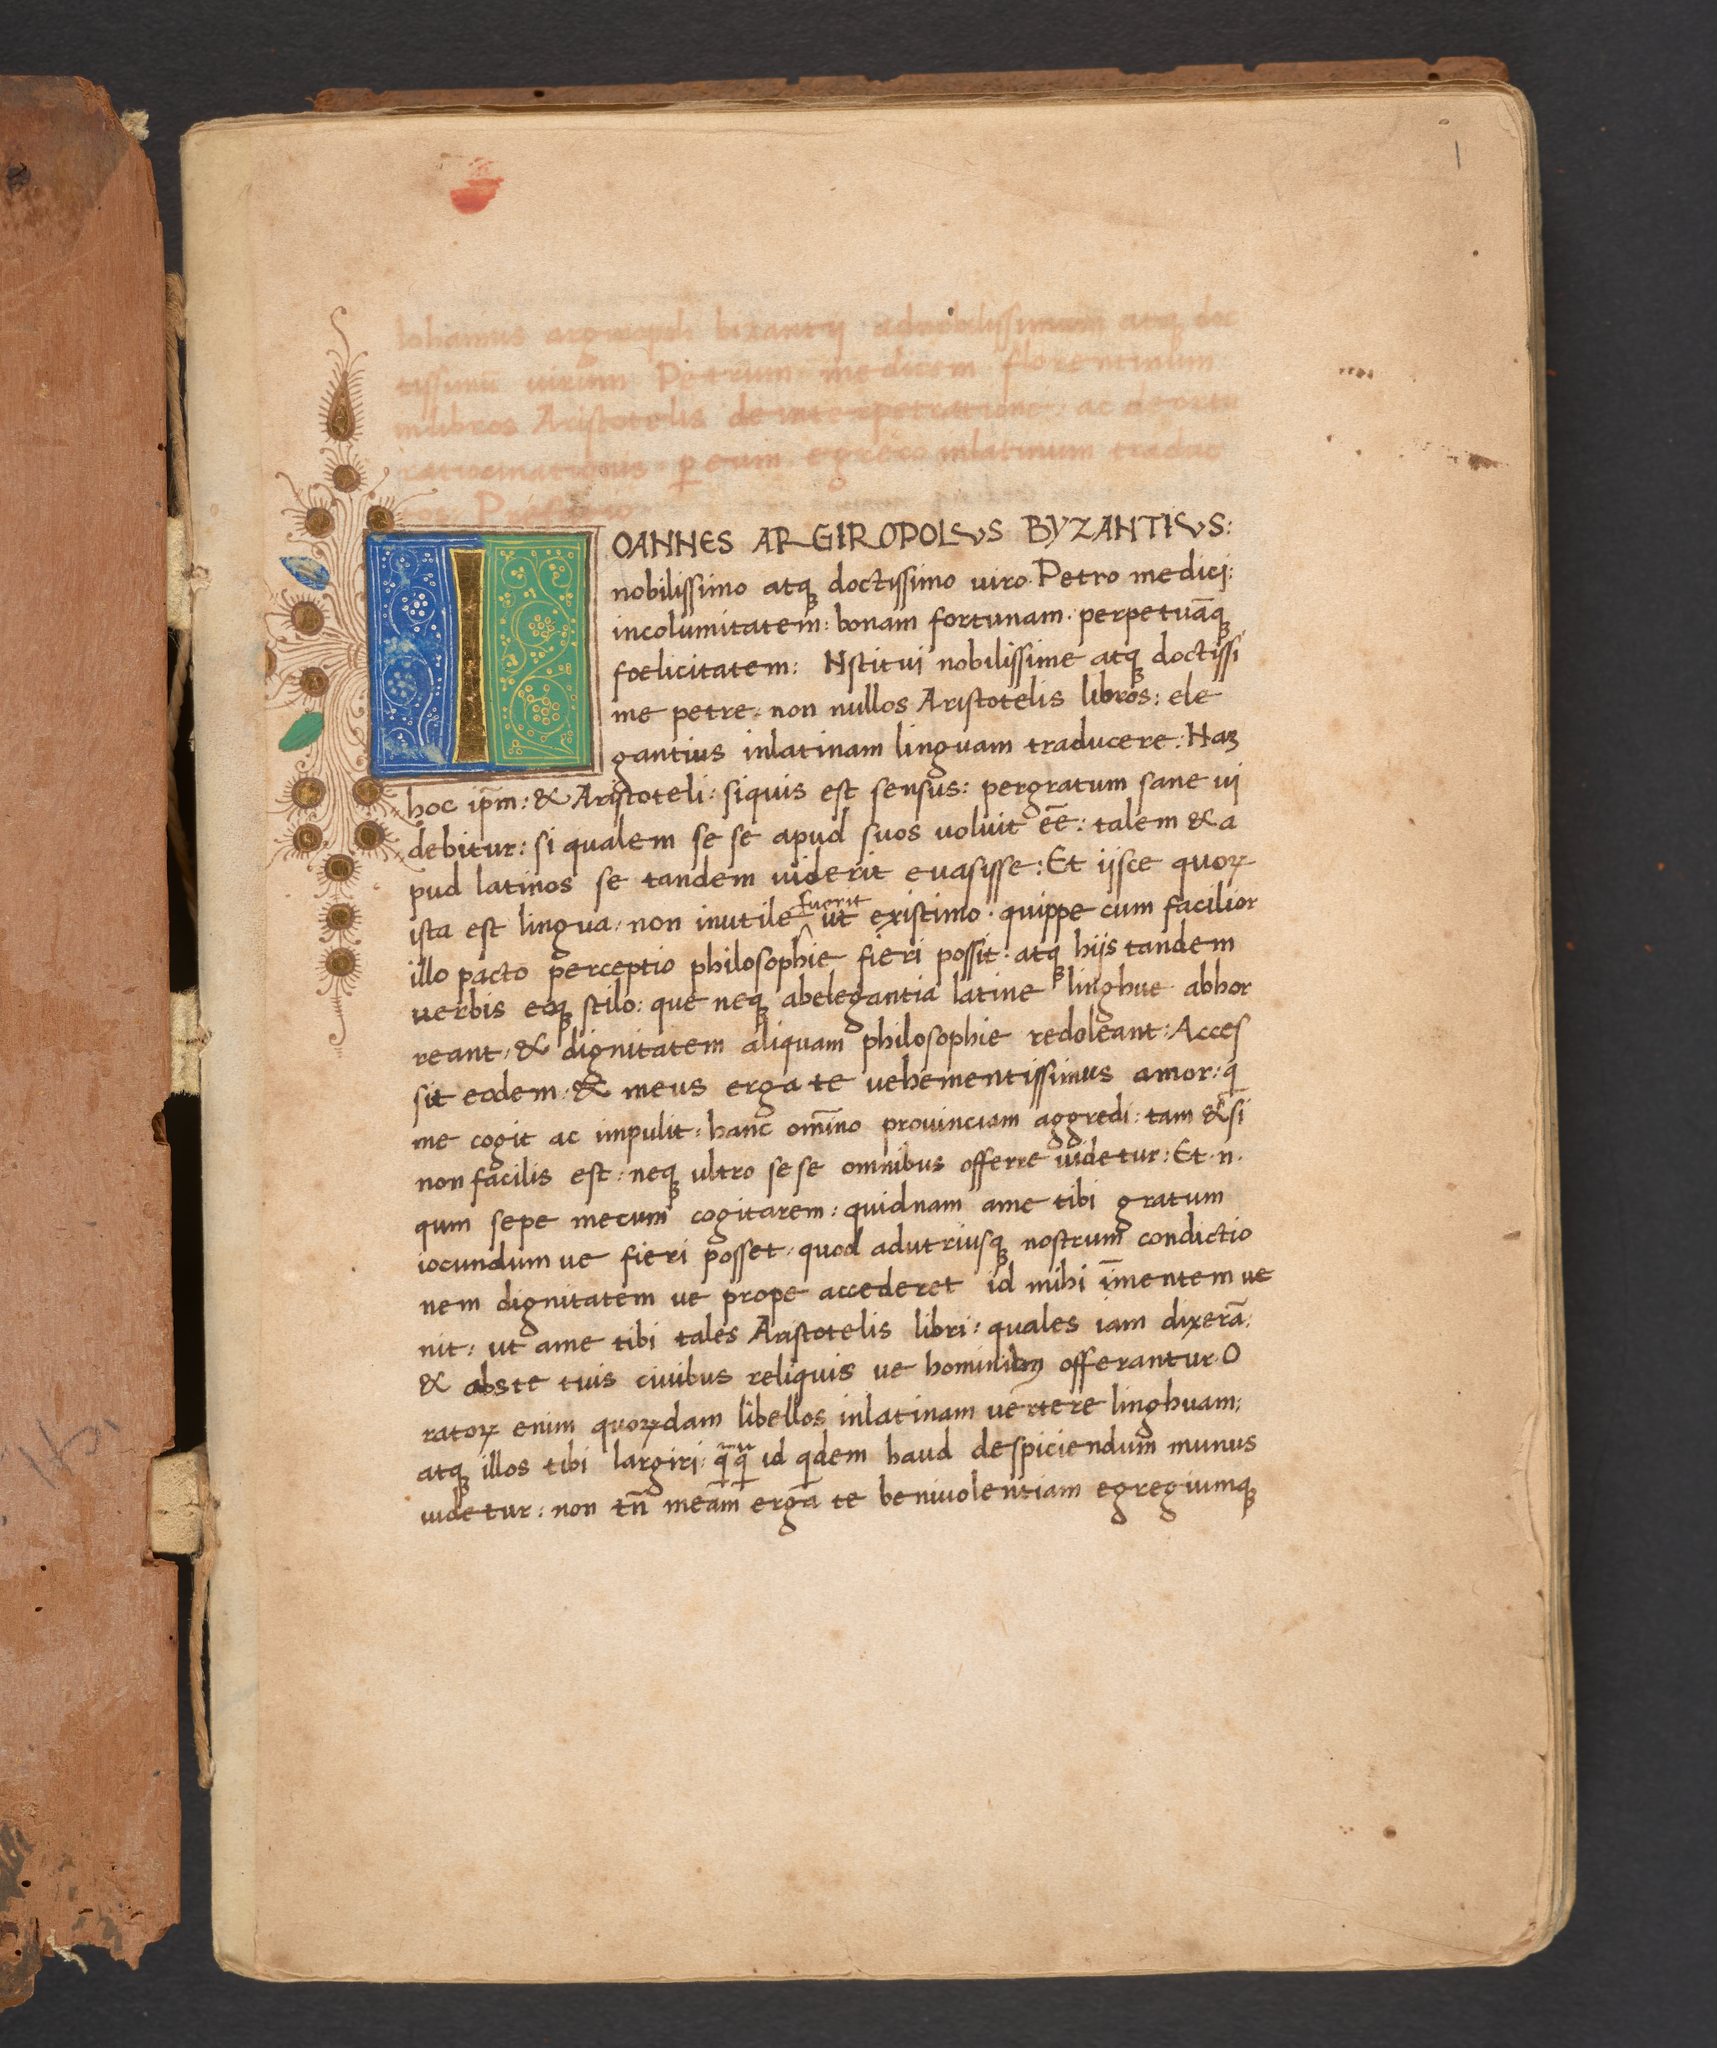 1
Iohannis argiropoli bizantij ad nobilissimum atq; doc
tissimū uirum Petrum medicem florentinum
in libros Aristotelis de interpetratione ac de ortu
ratiocinationis p̱ eum egreco inlatinum traduc
tos Prefatio
IOANNES ARGIROPOLVS BYZANTIVS:
nobilissimo atq; doctissimo uiro. Petro medici:
incolumitatem: bonam fortunam. perpetuāq;
foelicitatem: Nstitui nobilissime atq; doctissi
me petre: non nullos Aristotelis libros: ele
gantius inlatinam linguam traducere: Naʒ
hoc ip̄m: & Aristoteli: siquis est sensus: pergratum sane ui
debitur: si qualem se se apud suos uoluit eē: talem & a
pud latinos se tandem uiderit euasisse: Et ijsce quoꝝ
ista est lingua, non inutile fuerit ut existimo. quippe cum facilior
illo pacto perceptio philosophie fieri possit. atq; hijs tandem
uerbis eoq; stilo: que neq; abelegantia latine linghue abhor
reant, & dignitatem aliquam philosophie redoleant: Acces
sit eodem: & meus erga te uehementissimus amor: q
me cogit ac impulit: hanc om̄ino prouinciam aggredi: tam & si
non facilis est: neq; ultro se se omnibus offerre uidetur: Et .n.
qum sepe mecum cogitarem: quidnam ame tibi gratum
iocundum ue fieri posset: quod adutriusq; nostrum condictio
nem dignitatem ue prope accederet id mihi īmentem ue
nit: ut ame tibi tales Aristotelis libri: quales iam dixerā:
& abs te tuis ciuibus reliquis ue hominibus offerantur. O
ratoꝝ enim quoꝝdam libellos inlatinam uertere linghuam:
atq; illos tibi largiri: qꝫqꝫ id qdem haud despiciendum munus
uidetur: non tn̄ meam erga te beniuolentiam egregiumq;